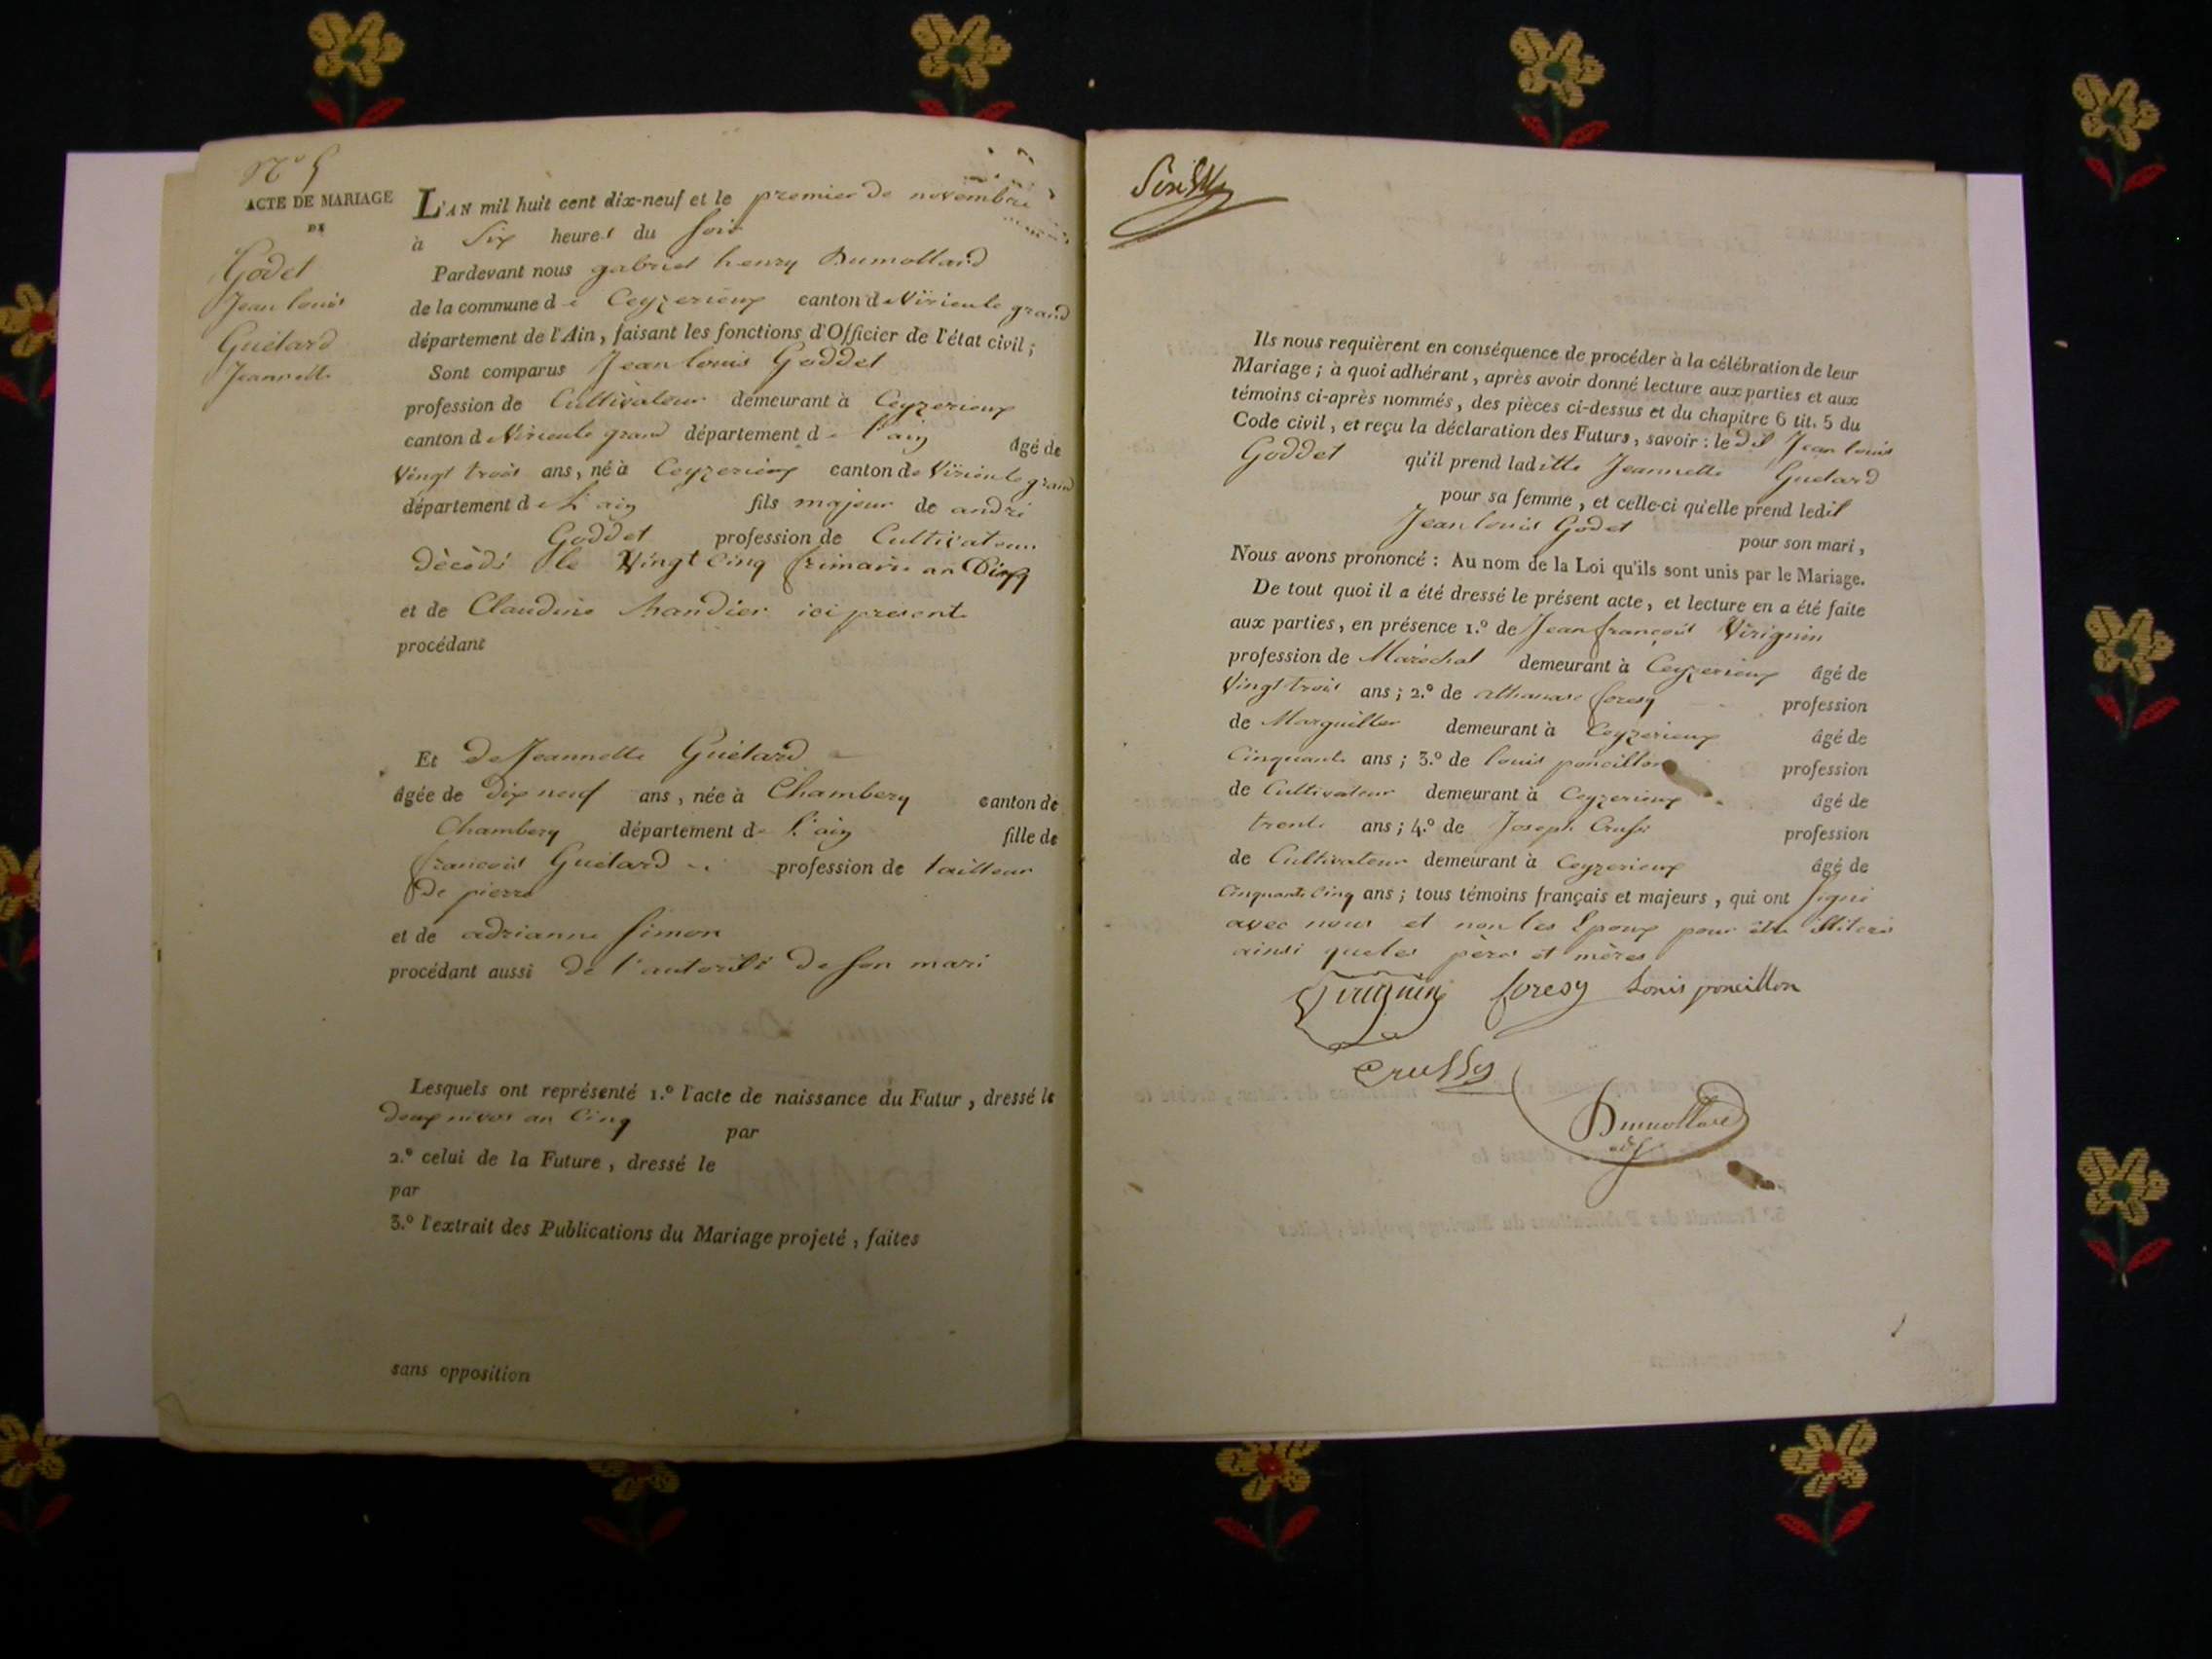 N.o 5
ACTE DE MARIAGE
DE
Godet
Jean louis
Guétard
Jeannette
L'AN mil huit cent dix-neuf et le premier de novembre
à Six heures du soir
Pardevant nous gabriel henry Dumollard
de la commune de Ceyzerieux canton de Virieule grand
département de l'Ain, faisant les fonctions d'Officier de l'état civil;
Sont comparus Jean louis Goddet
profession de Cultivateur demeurant à Ceyzerieux
canton de Virieule grand département de l'ain âgé de
Vingt trois ans, né à Ceyzerieux canton de Virieule grand
département de l'ain fils majeur de andré
Goddet profession de Cultivateur
décédé le Vingt Cinq frimaire an Cinq
et de Claudine Mandier ici présente
procédant
Et de Jeannette Guétard
âgée de dix neuf ans, née à Chambery canton de
Chambery département de l'ain fille de
françois Guétard profession de tailleur
de pierre
et de adrianne Simon
procédant aussi de l'autorité de son mari
Lesquels ont représenté 1.º l'acte de naissance du Futur, dressé le
deux nivos an Cinq par
2.º celui de la Future, dressé le
par
3.º l'extrait des Publications du Mariage projeté, faites
sans opposition
Ils nous requièrent en conséquence de procéder à la célébration de leur
Mariage; à quoi adhérant, après avoir donné lecture aux parties et aux
témoins ci-après nommés, des pièces ci-dessus et du chapitre 6 tit. 5 du
Code civil, et reçu la déclaration des Futurs, savoir: le dit Jean louis
Goddet qu'il prend laditte Jeannette Guetard
pour sa femme, et celle-ci qu'elle prend ledit
Jean louis Godet pour son mari,
Nous avons prononcé: Au nom de la Loi qu'ils sont unis par le Mariage.
De tout quoi il a été dressé le présent acte, et lecture en a été faite
aux parties, en présence 1.º de Jean françois Virignin
profession de Maréchal demeurant à Ceyzerieux âgé de
Vingt trois ans; 2.º de athanase foresy profession
de Marguiller demeurant à Ceyzerieux âgé de
Cinquante ans; 3.º de louis poncillon profession
de Cultivateur demeurant à Ceyzerieux âgé de
trente ans; 4.º de Joseph profession
de Cultivateur demeurant à Ceyzerieux âgé de
Cinquante Cinq ans; tous témoins français et majeurs, qui ont signé
avec nous et non les Epoux pour être illiteré
ainsi que les pères et mères
Virignin foresy Louis poncillon
Crussy
Dumollard
adj